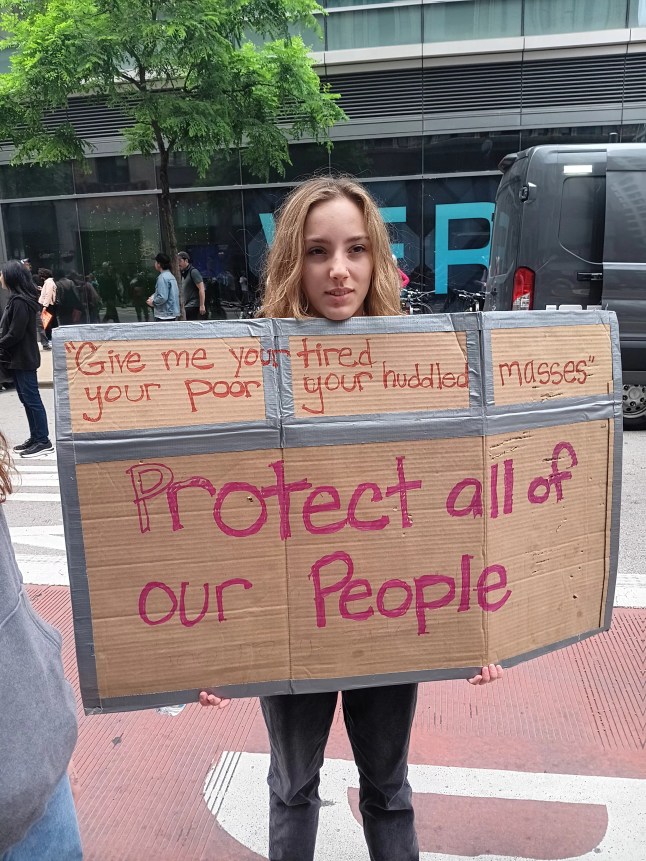 "Give me your tired
your poor your huddled masses"
Protect all of
our People